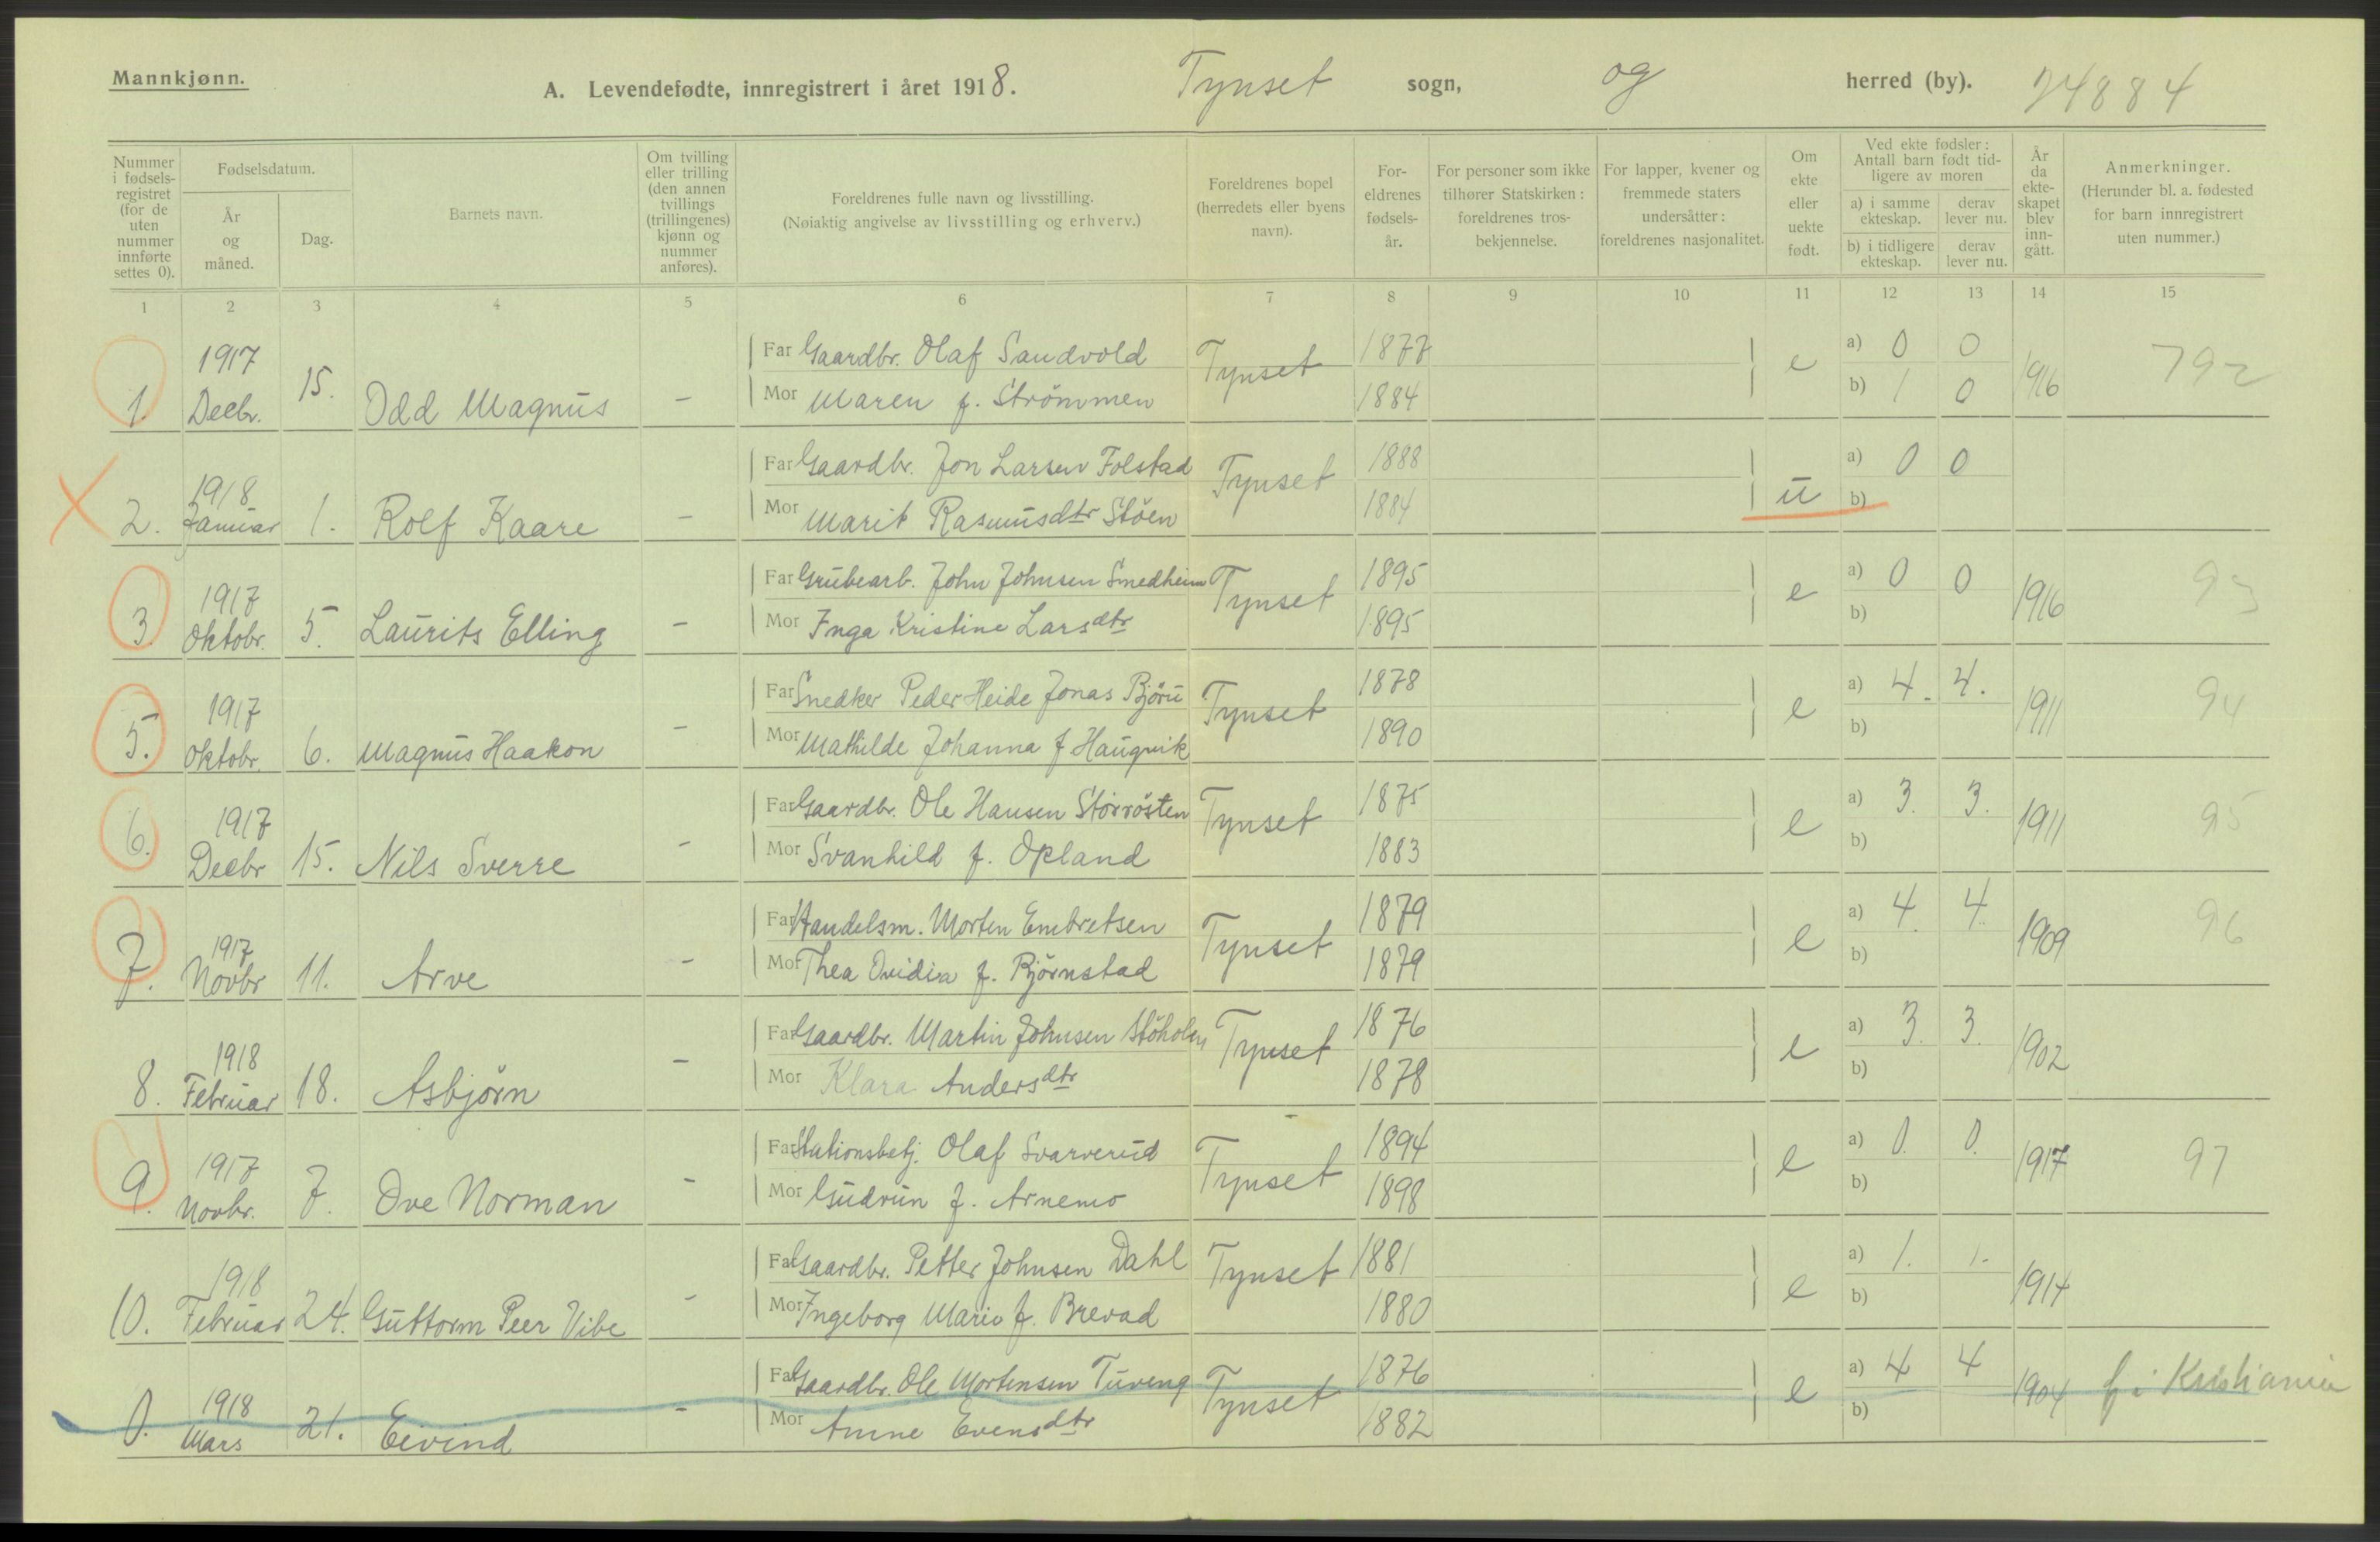 Mannkjønn.
A. Levendefødte, innregistrert i året 1918. Tynset sogn, og herred (by). 24884
Nummer i fødselsregistret (for de uten nummer innførte settes 0).
Fødselsdatum.
År og måned.
Dag.
Barnets navn.
Om tvilling eller trilling (den annen tvillings (trillingenes) kjønn og nummer anføres).
Foreldrenes fulle navn og livsstilling.
(Nøiaktig angivelse av livsstilling og erhverv.)
Foreldrenes bopel (herredets eller byens navn).
Foreldrenes fødselsår.
For personer som ikke tilhører Statskirken: foreldrenes trosbekjennelse.
For lapper, kvener og fremmede staters undersåtter: foreldrenes nasjonalitet.
Om ekte eller uekte født.
Ved ekte fødsler: Antall barn født tidligere av moren
a) i samme ekteskap. derav lever nu.
b) i tidligere ekteskap. derav lever nu.
År da ekteskapet blev inngått.
Anmerkninger.
(Herunder bl. a. fødested for barn innregistrert uten nummer.)
1 2 3 4 5 6 7 8 9 10 11 12 13 14 15
1. 1917 Decbr. 15. Odd Magnus - Far Gaardbr. Olaf Sandvold Tynset 1877 e a) 0 0 1916 792
Mor Maren f. Strömmen 1884 b) 1 0
2. 1918 Januar 1. Rolf Kaare - Far Gaardbr. Jon Larsen Folstad Tynset 1888 u a) 0 0
Mor Marit Rasmusdtr Stöen 1884 b)
3. 1917 Oktobr. 5. Laurits Elling - Far Grubearb. John Johnsen Smedheim Tynset 1895 e a) 0 0 1916 93
Mor Inga Kristine Larsdtr 1895 b)
5. 1917 Oktobr. 6. Magnus Haakon - Far Snedker Peder Heide Jonas Björu Tynset 1878 e a) 4. 4. 1911 94
Mor Mathilde Johanna f Haugvik 1890 b)
6. 1917 Decbr 15. Nils Sverre - Far Gaardbr. Ole Hansen Störrösten Tynset 1875 e a) 3. 3. 1911 95
Mor Svanhild f. Opland 1883 b)
7. 1917 Novbr 11. Arve - Far Handelsm. Morten Embretsen Tynset 1879 e a) 4. 4. 1909 96
Mor Thea Ovidia f. Björnstad 1879 b)
8. 1918 Februar 18. Asbjörn - Far Gaardbr. Martin Johnsen Stöholen Tynset 1876 e a) 3. 3. 1902
Mor Klara Andersdtr 1878 b)
9. 1917 Novbr. 7. Ove Norman - Far Stationsbetj. Olaf Svarverud Tynset 1894 e a) 0. 0. 1917 97
Mor Gudrun f. Arnemo 1898 b)
10. 1918 Februar 24. Guttorm Peer Vibe - Far Gaardbr. Petter Johnsen Dahl Tynset 1881 e a) 1. 1. 1914
Mor Ingeborg Marie f. Brevad 1880 b)
0. 1918 Mars 21. Eivind - Far Gaardbr. Ole Mortensen Tuveng Tynset 1876 e a) 4 4 1904 f i Kristiania
Mor Anne Evensdtr 1882 b)